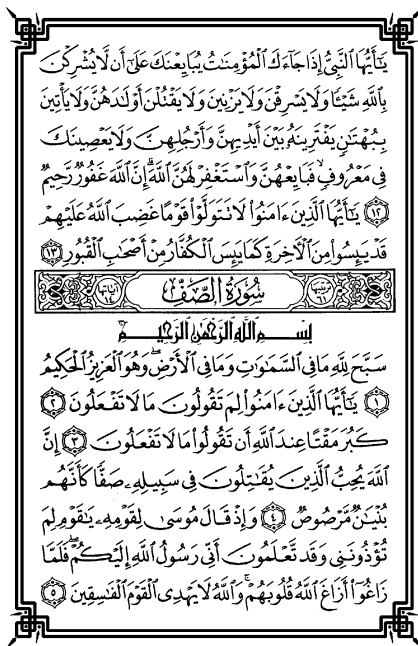 يَٰٓأَيُّهَا ٱلنَّبِىُّ إِذَا جَآءَكَ ٱلْمُؤْمِنَٰتُ يُبَايِعْنَكَ عَلَىٰٓ أَن لَّا يُشْرِكْنَ
بِٱللَّهِ شَيْـًٔا وَلَا يَسْرِقْنَ وَلَا يَزْنِينَ وَلَا يَقْتُلْنَ أَوْلَٰدَهُنَّ وَلَا يَأْتِينَ
بِبُهْتَٰنٍ يَفْتَرِينَهُۥ بَيْنَ أَيْدِيهِنَّ وَأَرْجُلِهِنَّ وَلَا يَعْصِينَكَ
فِى مَعْرُوفٍ ۙ فَبَايِعْهُنَّ وَٱسْتَغْفِرْ لَهُنَّ ٱللَّهَ ۖ إِنَّ ٱللَّهَ غَفُورٌ رَّحِيمٌ
۝١٢ يَٰٓأَيُّهَا ٱلَّذِينَ ءَامَنُوا۟ لَا تَتَوَلَّوْا۟ قَوْمًا غَضِبَ ٱللَّهُ عَلَيْهِمْ
قَدْ يَئِسُوا۟ مِنَ ٱلْءَاخِرَةِ كَمَا يَئِسَ ٱلْكُفَّارُ مِنْ أَصْحَٰبِ ٱلْقُبُورِ ۝١٣
ترتيبها ٦١ سُورَةُ الصَّفِّ آياتها ١٤
بِسْمِ ٱللَّهِ ٱلرَّحْمَٰنِ ٱلرَّحِيمِ
سَبَّحَ لِلَّهِ مَا فِى ٱلسَّمَٰوَٰتِ وَمَا فِى ٱلْأَرْضِ ۖ وَهُوَ ٱلْعَزِيزُ ٱلْحَكِيمُ
۝١ يَٰٓأَيُّهَا ٱلَّذِينَ ءَامَنُوا۟ لِمَ تَقُولُونَ مَا لَا تَفْعَلُونَ ۝٢
كَبُرَ مَقْتًا عِندَ ٱللَّهِ أَن تَقُولُوا۟ مَا لَا تَفْعَلُونَ ۝٣ إِنَّ
ٱللَّهَ يُحِبُّ ٱلَّذِينَ يُقَٰتِلُونَ فِى سَبِيلِهِۦ صَفًّا كَأَنَّهُم
بُنْيَٰنٌ مَّرْصُوصٌ ۝٤ وَإِذْ قَالَ مُوسَىٰ لِقَوْمِهِۦ يَٰقَوْمِ لِمَ
تُؤْذُونَنِى وَقَد تَّعْلَمُونَ أَنِّى رَسُولُ ٱللَّهِ إِلَيْكُمْ ۖ فَلَمَّا
زَاغُوٓا۟ أَزَاغَ ٱللَّهُ قُلُوبَهُمْ ۚ وَٱللَّهُ لَا يَهْدِى ٱلْقَوْمَ ٱلْفَٰسِقِينَ ۝٥